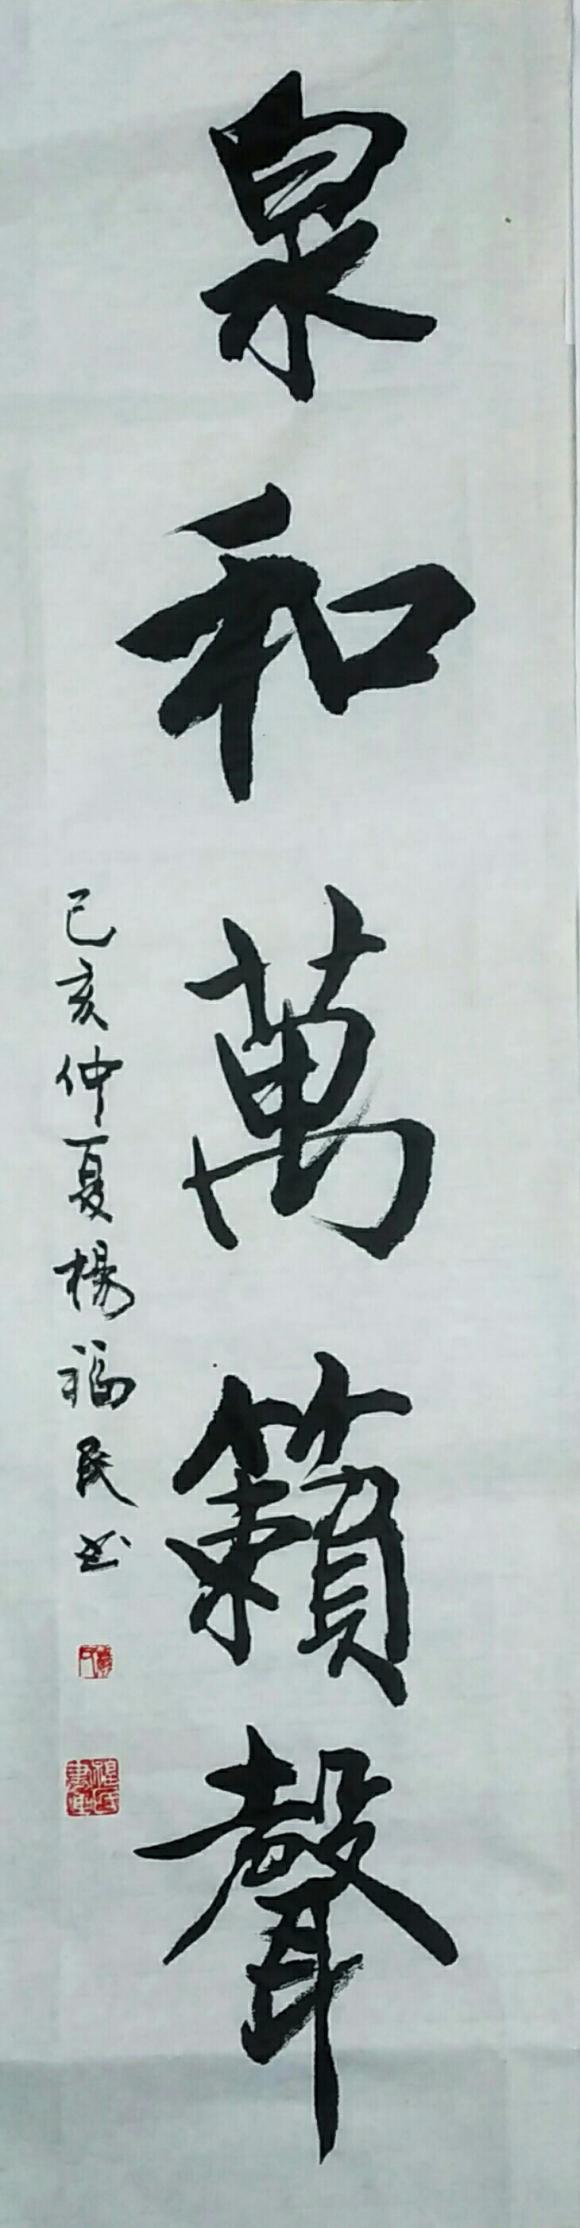 泉和萬籟聲
己亥仲夏楊福民书